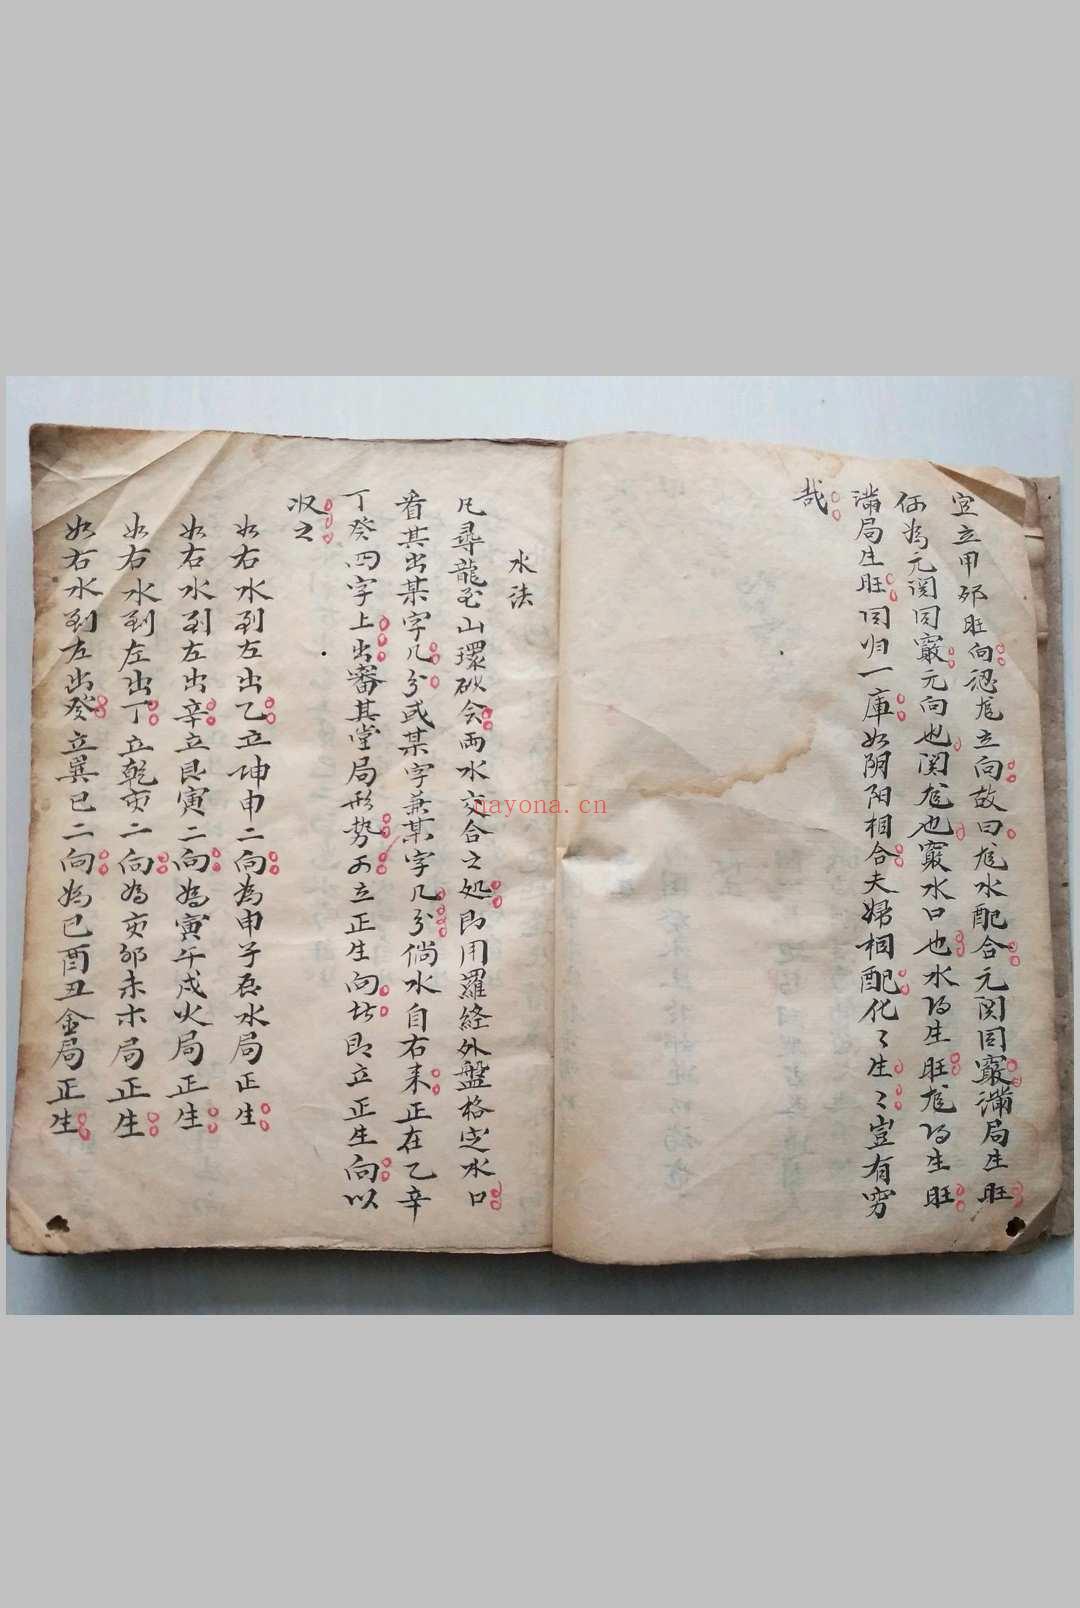 宜立甲邜旺向認尨立向故曰尨水配合元関同竅滿局生旺
何為元関同竅元向也関尨也竅水口也水得生旺尨得生旺
滿局生旺同归一庫如阴阳相合夫婦相配化〻生〻豈有穷
哉
水法
凡尋龍至山環砂会両水交合之処即用羅経外盤格定水口
看其出某字几分或某字兼某字几分倘水自右来正在乙辛
丁癸四字上出審其堂局形势可立正生向者即立正生向以
収之
如右水到左出乙立坤申二向為申子辰水局正生
如右水到左出辛立艮寅二向為寅午戌火局正生
如右水到左出丁立乾亥二向為亥邜未木局正生
如右水到左出癸立巽巳二向為巳酉丑金局正生
nayona.cn